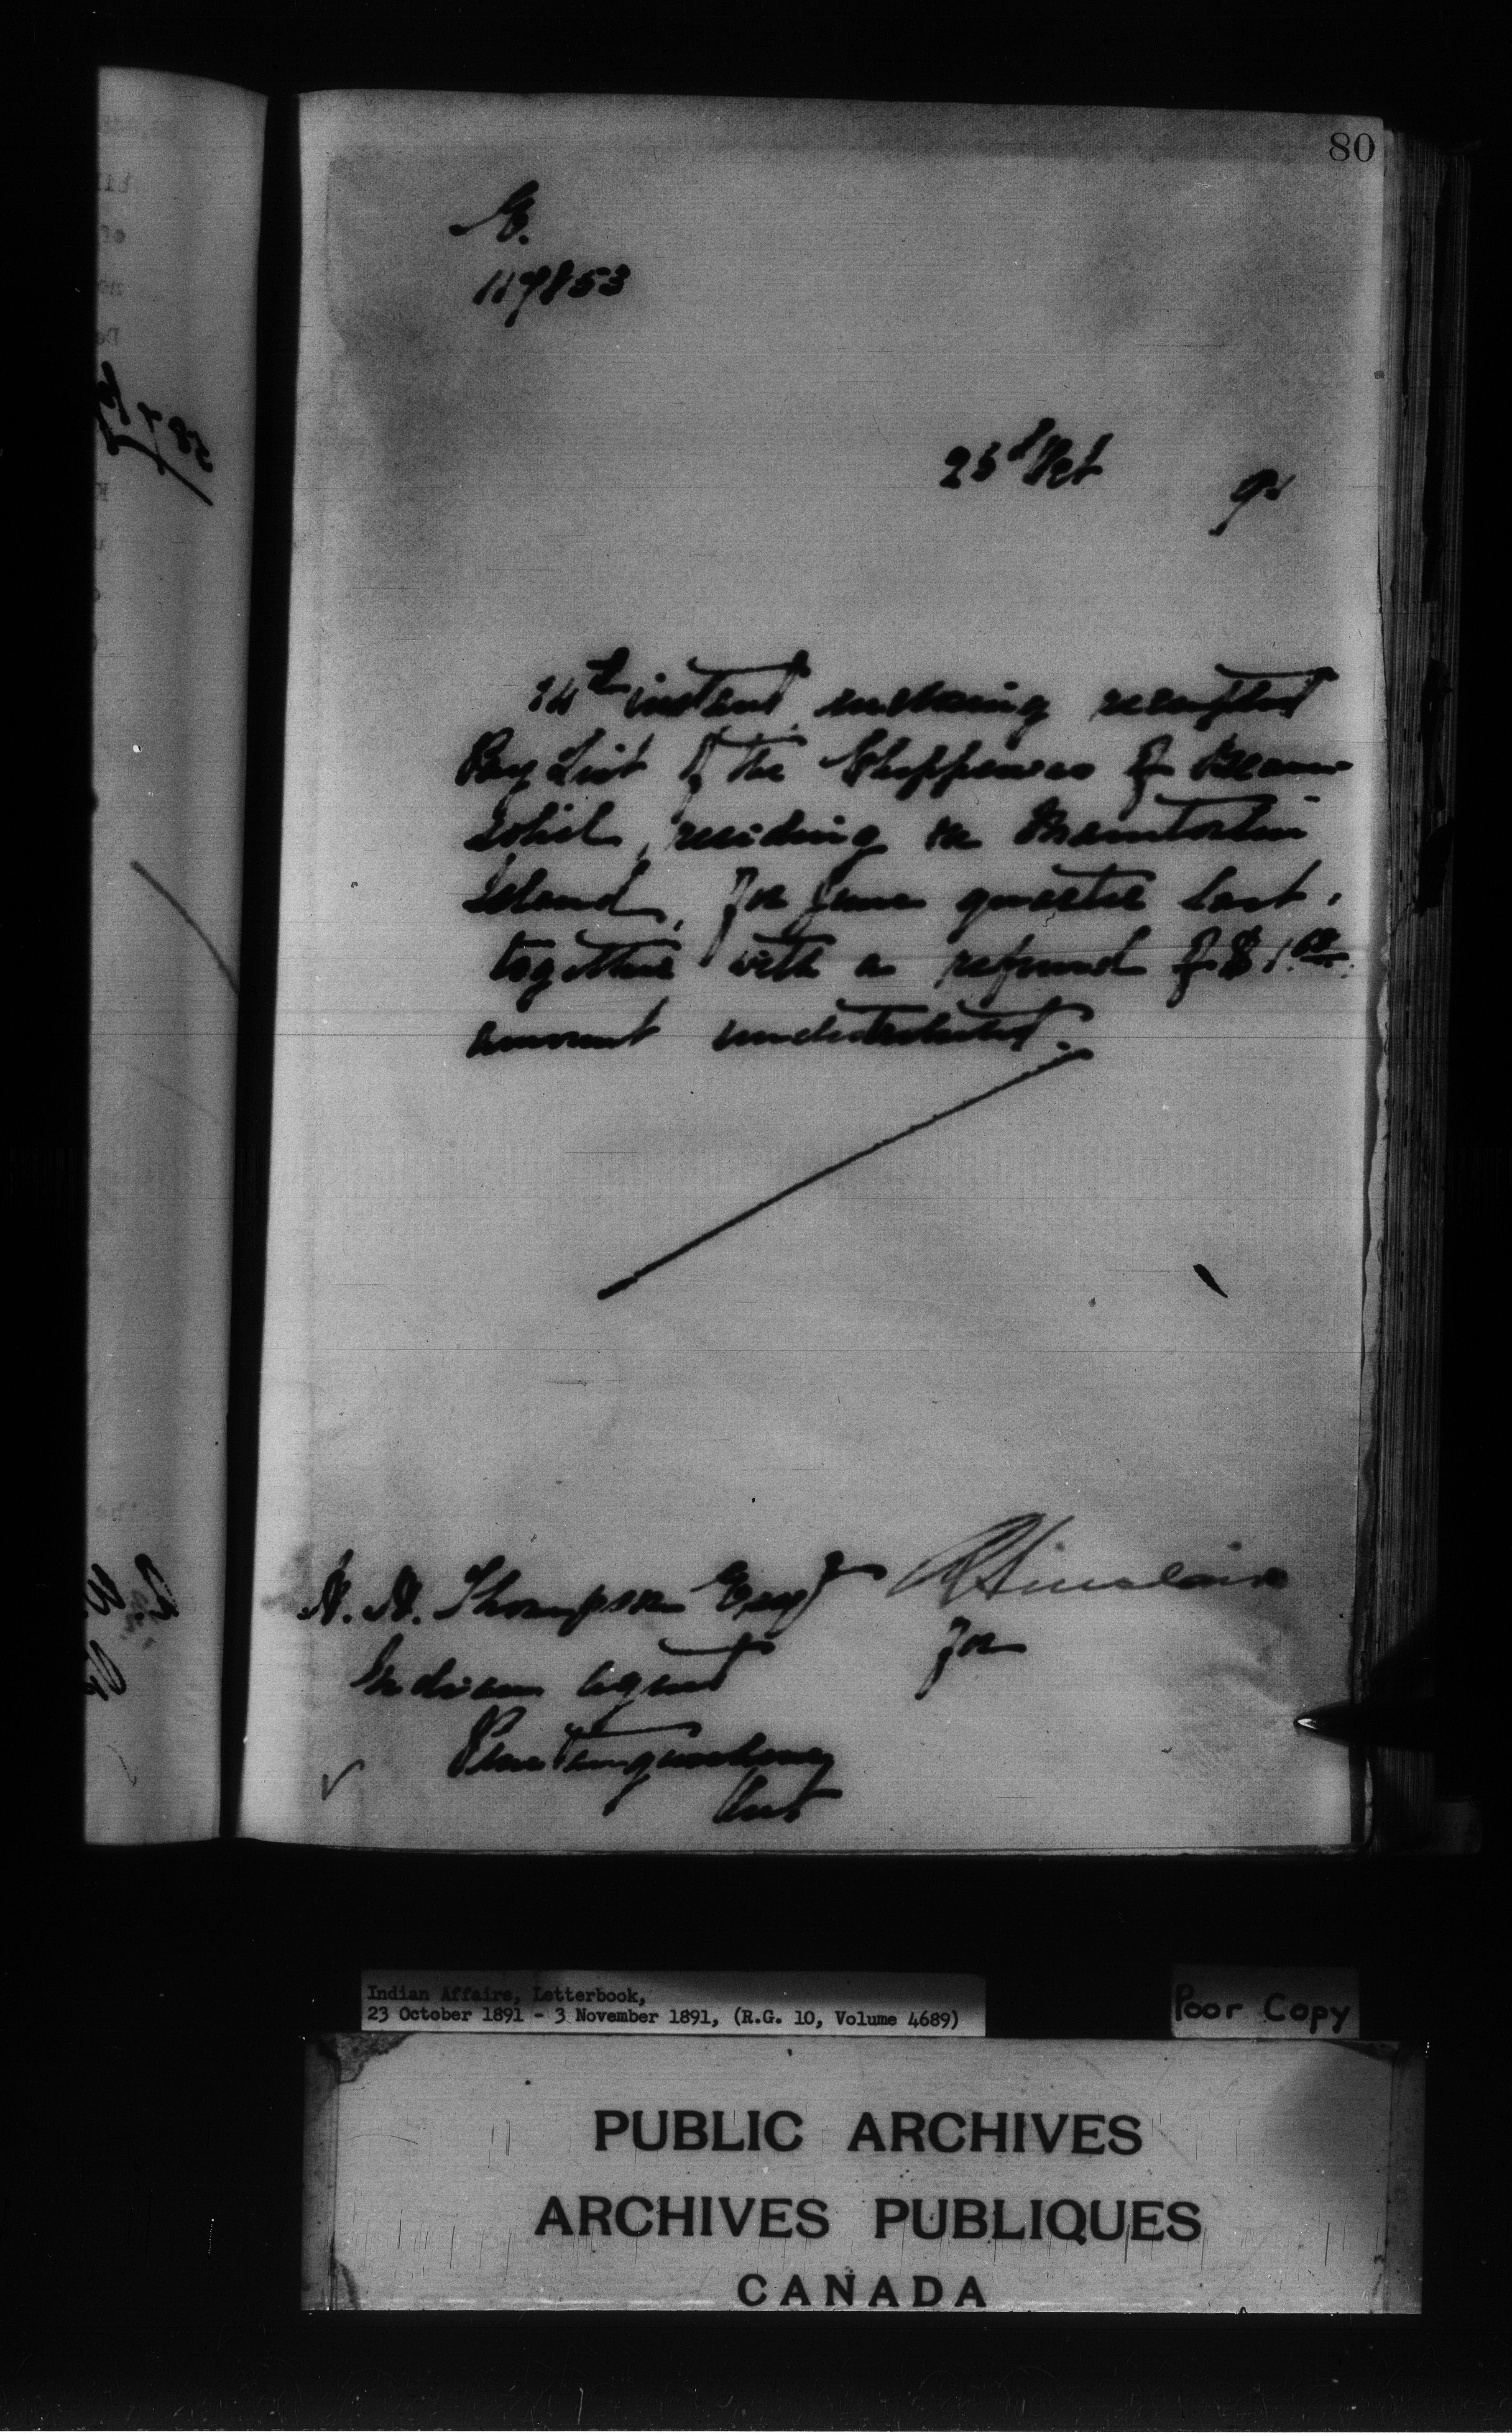 80
E.
119853
23d Oct 91
14th instant enclosing receipted
Pay List of the Chippewas of Beau
soliel, residing on Manitoulin
Island, for June quarter last,
together with a refund of $1.00
amount undistributed.
H. H. Thompson Esqr
RSinclair
for
Indian Agent
Penetanguishene
Ont
Indian Affairs, Letterbook,
23 October 1891 - 3 November 1891, (R.G. 10, Volume 4689)
Poor Copy
PUBLIC ARCHIVES
ARCHIVES PUBLIQUES
CANADA